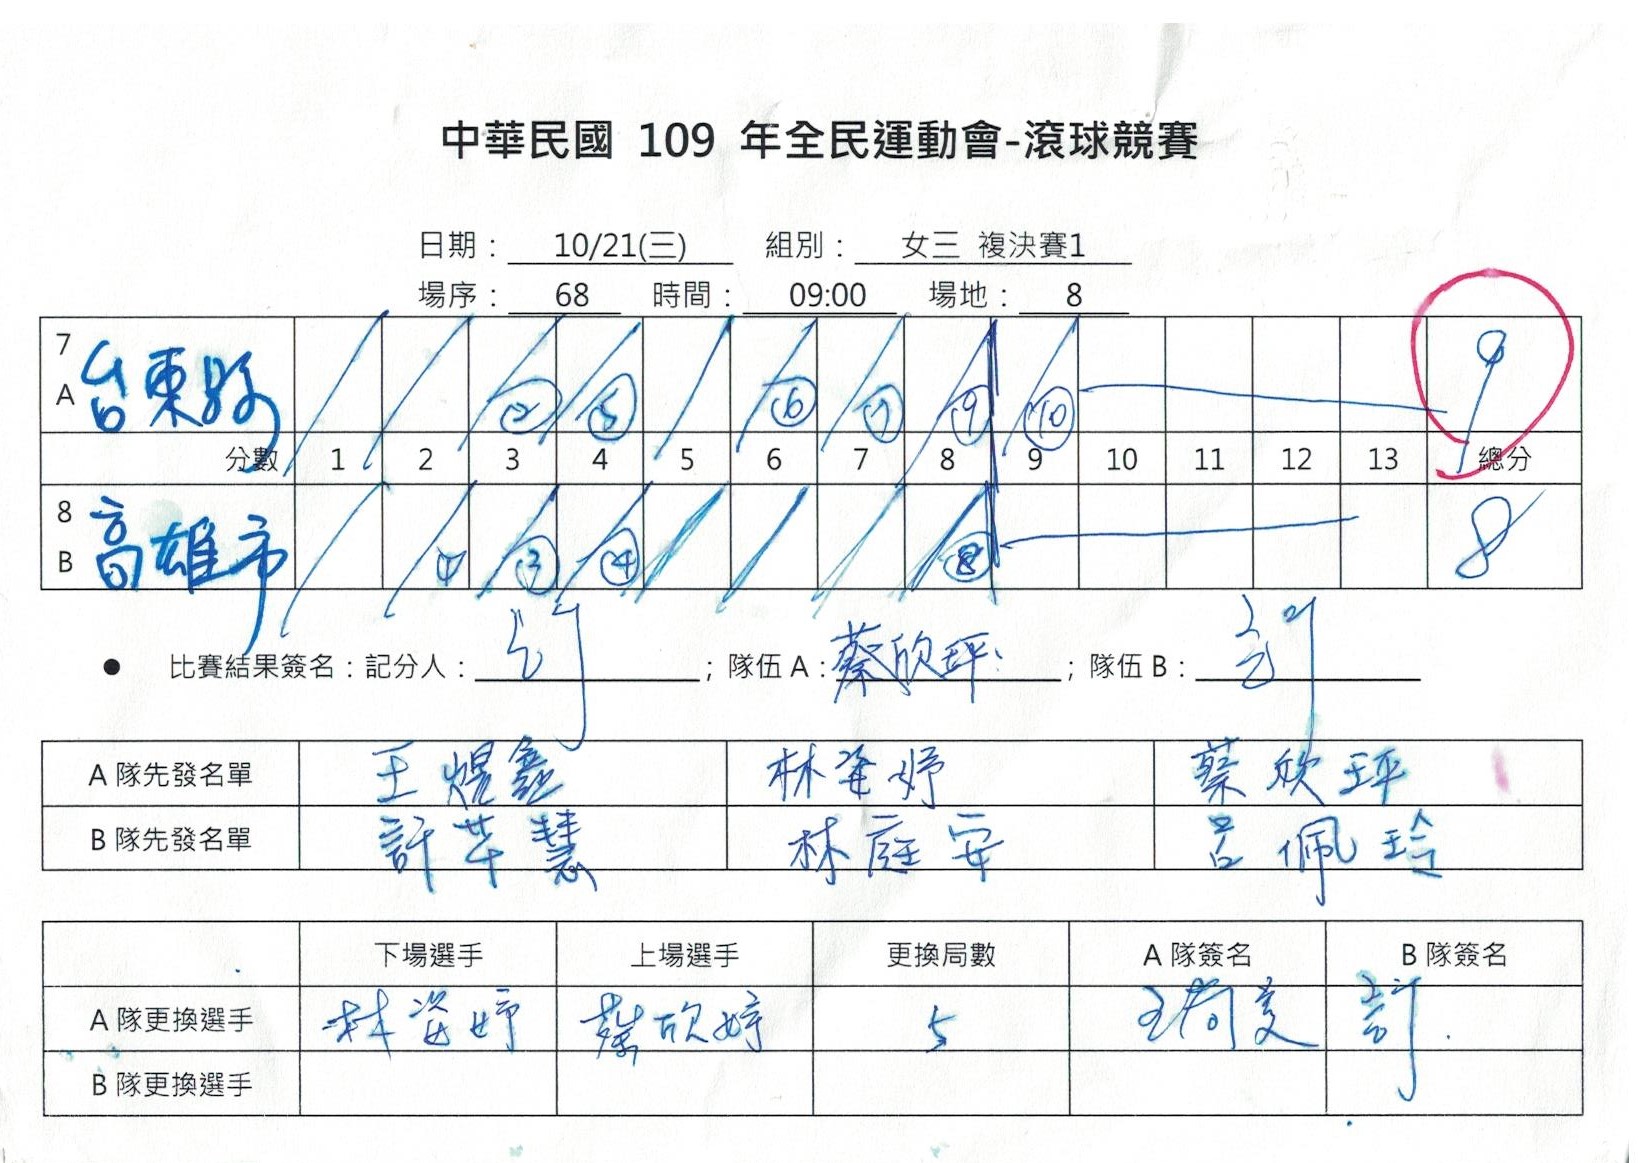 中華民國 109 年全民運動會-滾球競賽
日期： 10/21(三) 組別： 女三 複決賽1
場序： 68 時間： 09:00 場地： 8
7 A 台東縣 ② ⑤ ⑥ ⑦ ⑨ ⑩ 9
分數 1 2 3 4 5 6 7 8 9 10 11 12 13 總分
8 B 高雄市 ① ③ ④ ⑧ 8
● 比賽結果簽名：記分人： ；隊伍 A： 蔡欣玶 ；隊伍 B：
A 隊先發名單 王煜鑫 林姿妤 蔡欣玶
B 隊先發名單 許苹慧 林庭安 呂佩玲
下場選手 上場選手 更換局數 A 隊簽名 B 隊簽名
A 隊更換選手 林姿妤 蔡欣婷 5 許
B 隊更換選手